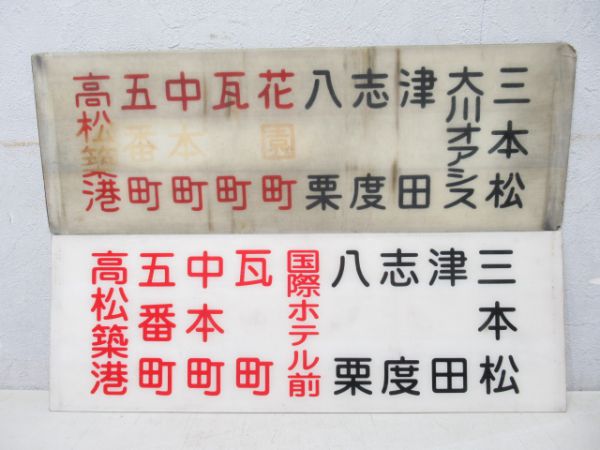 三本松
大川オアシス
津田
志度
八栗
花園町
瓦町
中本町
五番町
高松築港
三本松
津田
志度
八栗
国際ホテル前
瓦町
中本町
五番町
高松築港